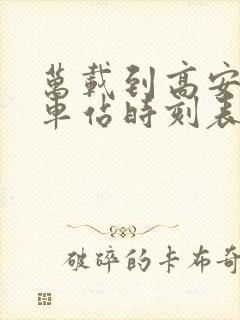 萬載到高安
車佔時刻表
破碎的卡布奇